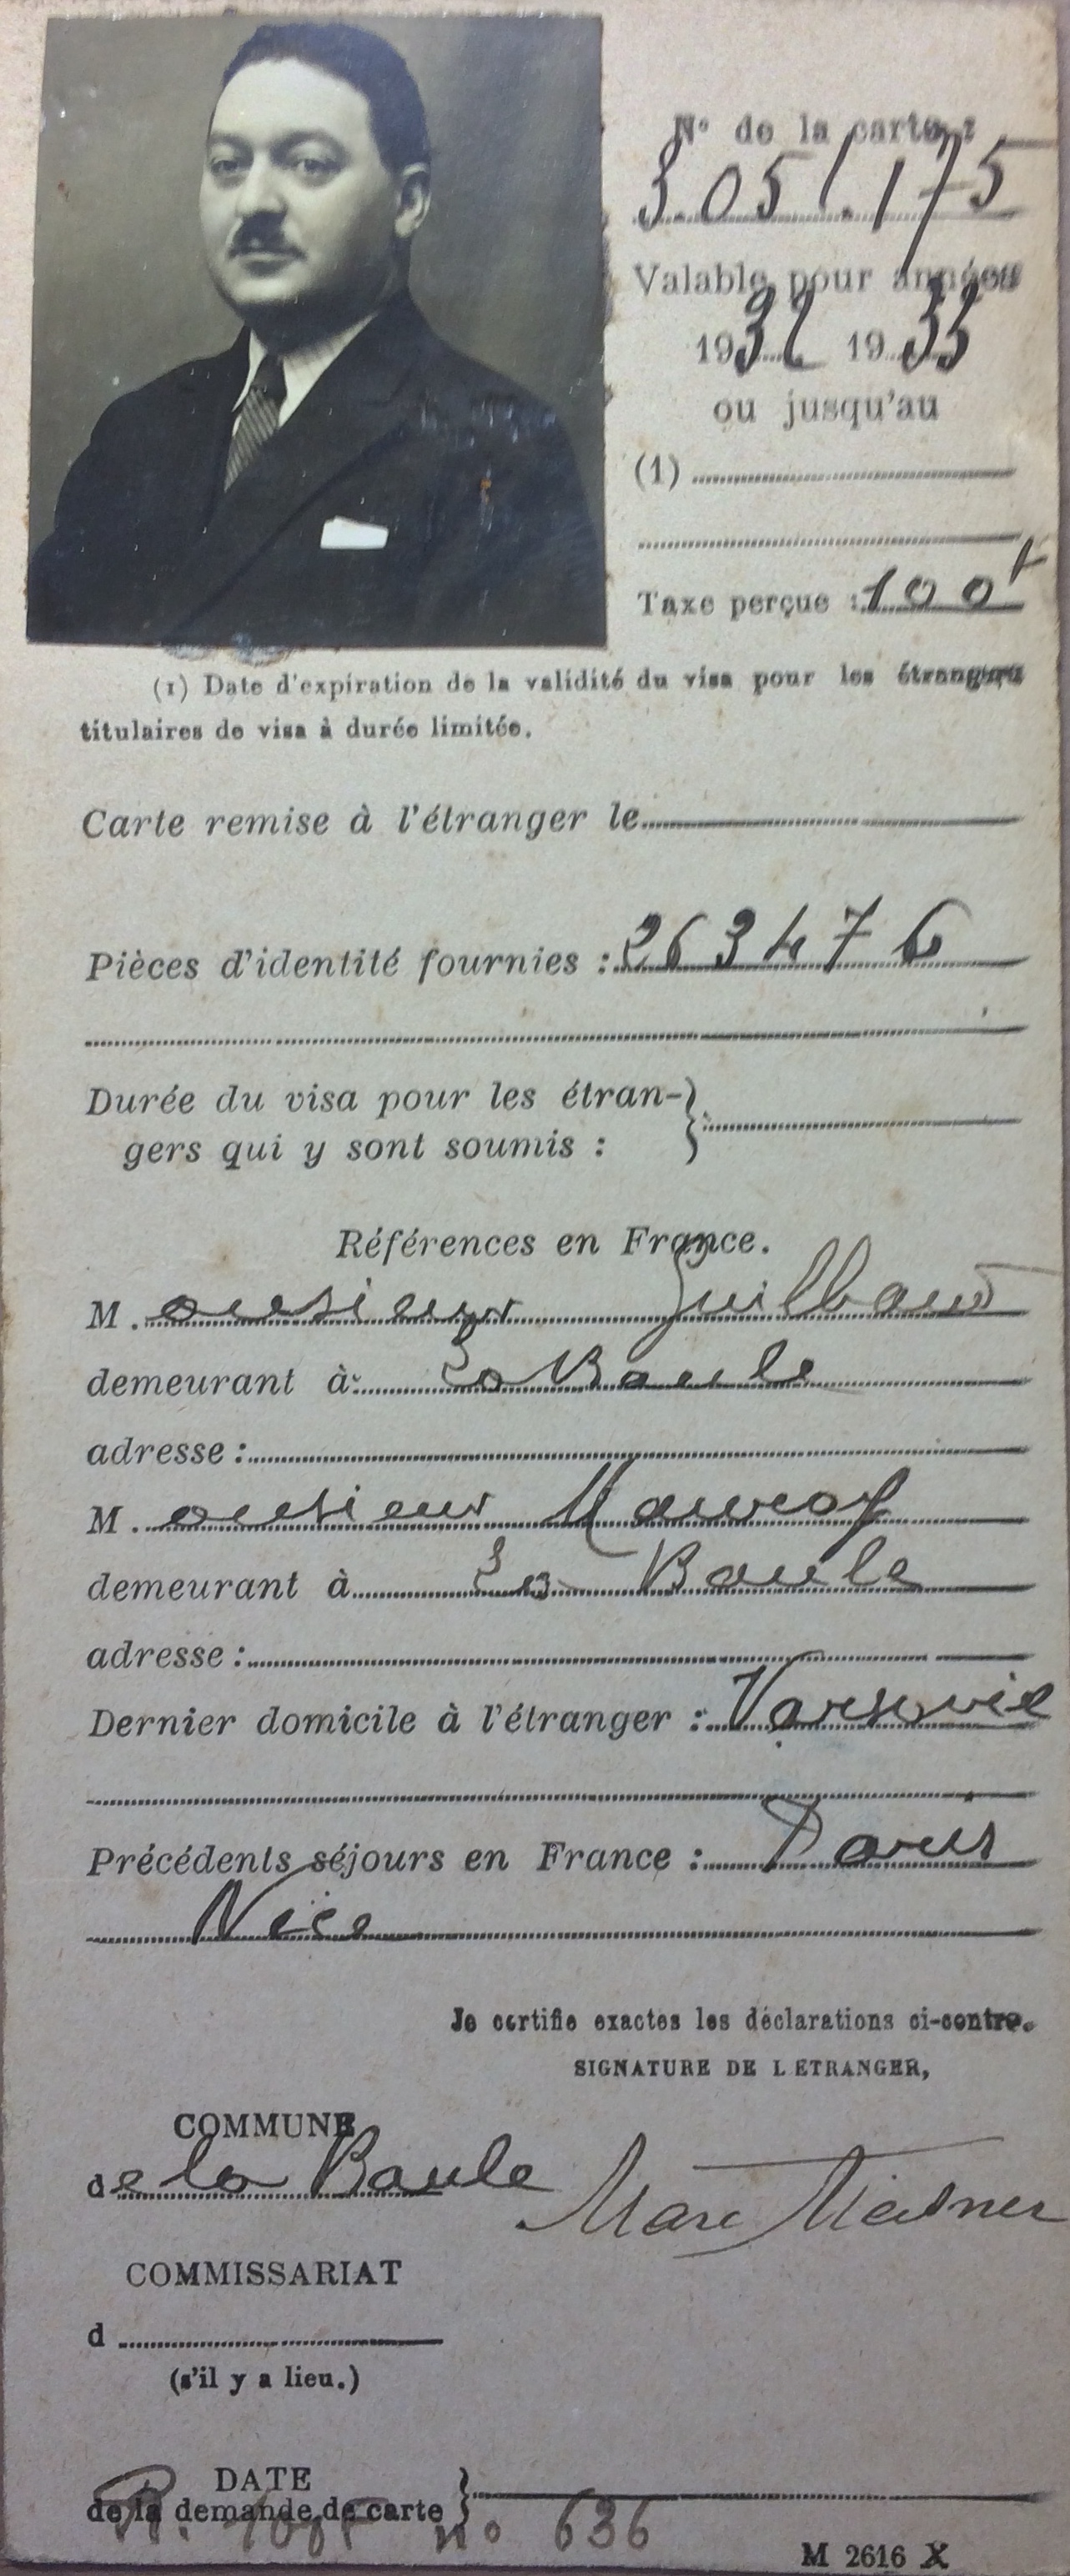 N° de la carte :
3.051.175
Valable pour années
1932 1935
ou jusqu'au
(1)
Taxe perçue : 100 f
(1) Date d'expiration de la validité du visa pour les étrangers
titulaires de visa à durée limitée.
Carte remise à l'étranger le
Pièces d'identité fournies : 263476
Durée du visa pour les étran-
gers qui y sont soumis :
Références en France.
M. onsieur Guilbaud
demeurant à: La Baule
adresse :
M. onsieur
demeurant à La Baule
adresse :
Dernier domicile à l'étranger : Varsovie
Précédents séjours en France : Paris
Nice
Je certifie exactes les déclarations ci-contre.
SIGNATURE DE L ETRANGER,
COMMUNE
de la Baule Marc Meisner
COMMISSARIAT
d
(s'il y a lieu.)
DATE
de la demande de carte
n° 636
M 2616 X